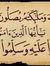 وَمَلَٰٓئِكَتَهُۥ يُصَلُّونَ
يَٰٓأَيُّهَا ٱلَّذِينَ
عَلَيْهِ وَسَلِّمُوا۟